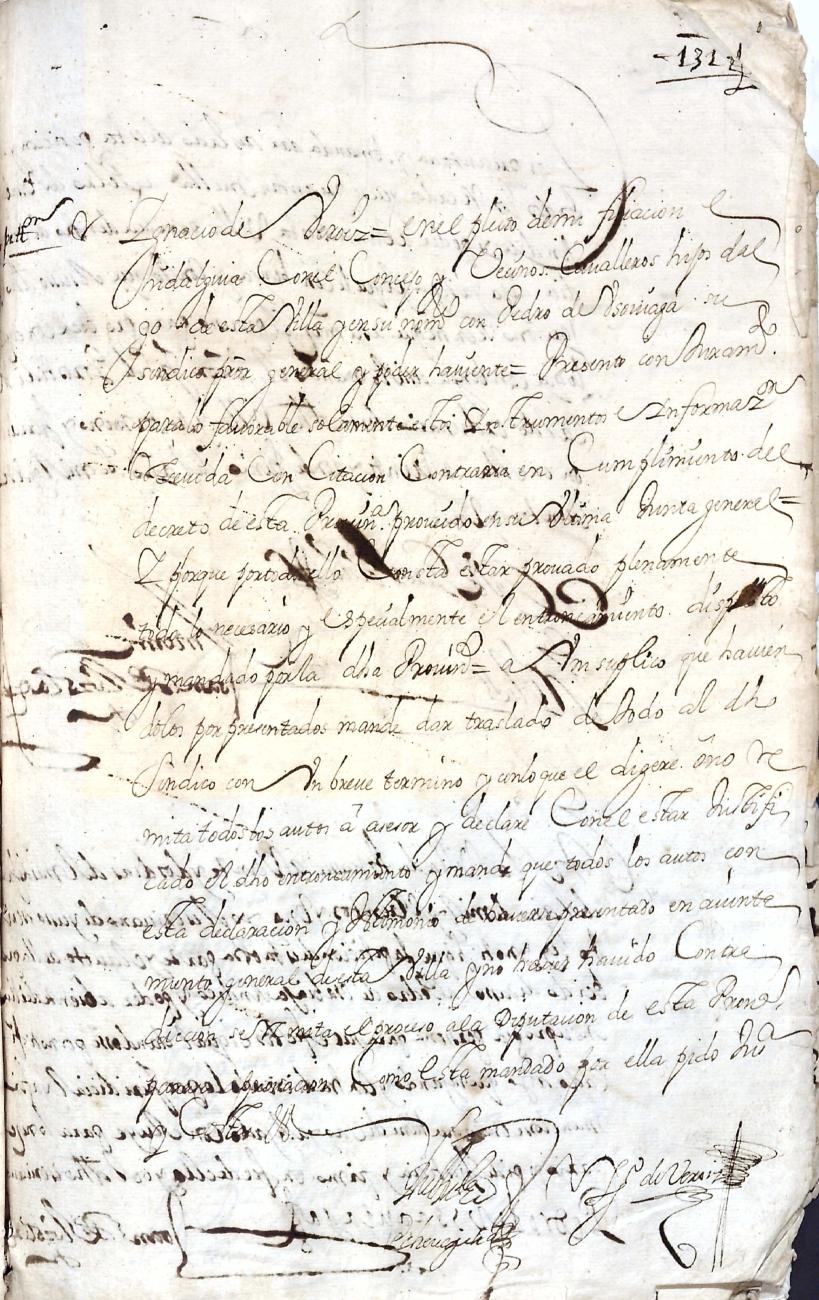 1312
petton
Ignacio de Veroiz = en el pleito de mi filiacion e
hidalguia Con el Concejo y Vecinos Cavalleros hijos dal
go de esta Villa y en su nom.e con Pedro de Usoviaga su
sindico pror general y poder haviente = Presento con Juram.to
para lo favorable solamente estos Instrumentos e Informazon
Con Citacion Contraria en Cumplimiento del
decreto de esta Provin.a proveido en su Ultima Junta general =
I porque por todo ello Consta estar provado plenamente
todo lo necesario y especialmente el entroncamiento dispuesto
y mandado por la dha Provin.a = a Vm suplico que havien
dolos por presentados mande dar traslado de todo al dho
Sindico con Un breve termino y con lo que el digere o no re
mita todos los autos a asesor y declare Con el estar Justifi
cado el dho entroncamiento y mande que todos los autos con
esta declaracion y testimonio de haverse presentado en aiunta
miento general de esta Villa y no haver havido Contra
dicion se remita el proceso a la Diputacion de esta Prov.a
para su aprovacion Como esta mandado por ella pido Jus.a
y Costas
Ig.o de Veroiz